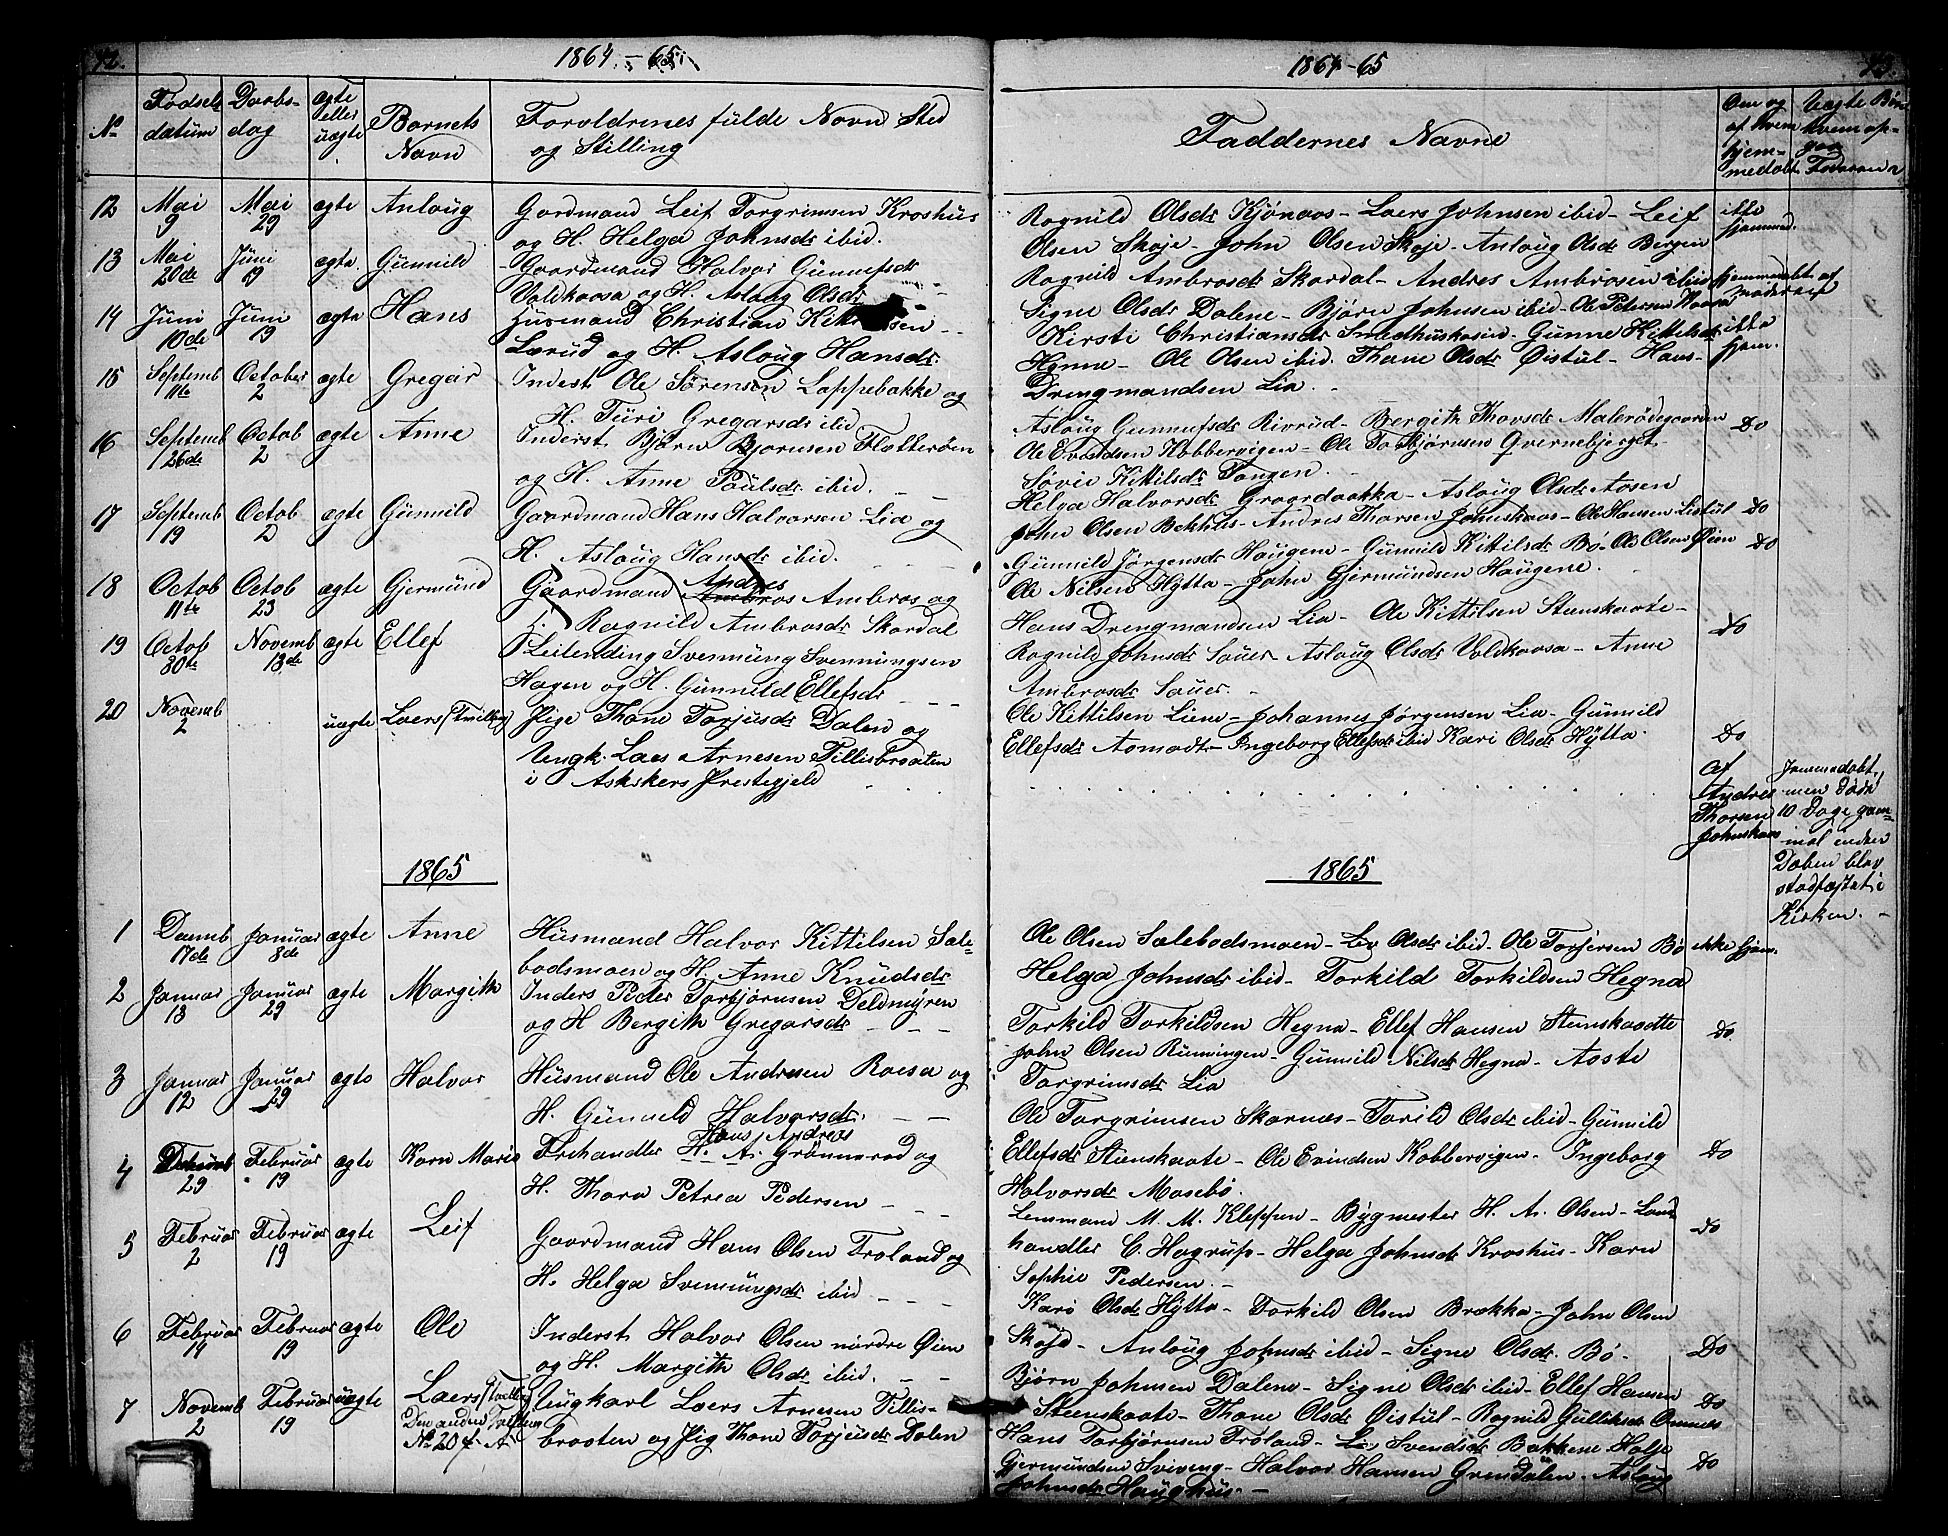 42.
1864-65
No
Fødsels datum
Daabs-dag
ægte eller uægte
Barnets Navn
Forældrenes fulde Navn Sted
og Stilling
12 Mai 9 Mai 29 ægte Anlaug
Gardmand Leif Torgrimsen Kroshus
og H. Helga Johnsdr ibid.
13 Mai 20de Juni 19 ægte Gunnild
Gaardmand Halvor Gunnufsdr
Valdkaasa og H. Aslaug Olsdr
14 Juni 10de Juni 19 ægte Hans
Husmand Christian
Lærud og H. Aslaug Hansdr
15 Septemb 11te October 2 ægte Gregar
Inderst Ole Sørensen Lappebakke og
H. Turi Gregarsdr ibid
16 Septemb 26de Octob 2 ægte Anne
Inderst Bjørn Bjørnsen Flatterøen
og H. Anne Paulsdr ibid.
17 Septemb 19 Octob 2 ægte Gunnild
Gaardmand Hans Halvorsen Lia og
H. Aslaug Hansdr ibid.
18 Octob 11te Octob 23 ægte Gjermund
Andres
Gaardmand Ambros Ambros og
H. Ragnild Ambrosdr Skardal
19 Octob 30te Novemb 13de ægte Ellef
Leilending Svennung Svennungsen
Hagen og H. Gunnild Ellefsdr
20 Novemb 2 uægte Laers (Tvilling)
Pige Thone Torjusdr Dalen og
Ungk. Laes Arnesen Tillisbraaten
i Askskers Prestegjeld
1865
1 Decmb 17de Januar 8de ægte Anne
Husmand Halvor Kittilsen Sale-
bodsmoen og H. Anne Knudsdr
2 Januar 13 Januar 29 ægte Margith
Inders Peder Torbjørnsen Deldmyren
og H Bergith Gregarsdr
3 Januar 12 Januar 29 ægte Halvor
Husmand Ole Andresen Raesa og
H. Gunneld Halvorsdr.
4 29 Februar 19 ægte Karn Marie
Hans Andreas
Frehandler H. A. Grønnerød og
H. Thora Petrea Pedersen
5 Februar 2 Februar 19 ægte Leif
Gaardmand Hans Olsen Troland og
H. Helga Svennungsdr ibid
6 Februar 14 Februar 19 ægte Ole
Inderst Halvor Olsen nordre Øien
og H. Margith Olsdr ibid.
7 Novemb 2 Februar 19 uægte Laers (Tvelling)
Den anden Tvelling
No 20 f. A.
Ungkarl Laers Arnesen Tillis-
braaten og Pig Thone Torjeusdr Dalen
1864-65
43.
Faddernes Navne
Om og af hvem hjem-medøbt
Uægte Børn hvem op-gaa Faderen
Ragnild Olsdr Kjønaas - Laers Johnsen ibid - Leif
Olsen Skoje - John Olsen Skoje - Anlaug Olsdr Bergen
ikke hjemmed.
Ragnild Ambrosdr Skardal - Andres Ambrosen ibid
Signe Olsdr Dalene - Bjørn Johnsen ibid - Ole Petersen
hjemmedøbt af moderen
Kirsti Christiansdr - Gunne Kittilsdr
Hynne - Ole Olsen ibid. Thone Olsdr Øistul - Hans
Drengmandsen Lia.
ikke hjem.
Aslaug Gunnufsdr Rivrud - Bergith Thorsdr
Ole Evindsen Kobbervigen - Ole Torbjørnsen Qvernebjerget
Søvie Kittilsdr Tangen.
Do
Helga Halvorsdr - Aslaug Olsdr Aasen
John Olsen Bekhus - Andres Thorsen Johnskaas - Ole Hansen Listul
Do
Gunnild Jørgensdr Haugene - Gunnild Kittilsdr Bø - Ole Olsen Øien
Ole Nilsen Hytta - John Gjermundsen Haugene.
Do
Hans Drengmandsen Lia - Ole Kittilsen Stenskaate -
Ragnild Johnsdr Sauer - Aslaug Olsdr Valdkaasa - Anne
Ambrosdr Sauer. -
Do
Ole Kittilsen Liene - Johannes Jørgensen Lia - Gunnild
Ellefsdr Aamodt - Ingeborg Ellefsdr ibid Kari Olsdr Hytta.
Do
Af Andres Thorsen Johnskaas
men døde 10 Dage gam-mel inden Daben blev stadfæstet i Kirken. -
1865
Ole Olsen Salebodsmoen - Liv Olsdr ibid - Ole Torjersen Bø
Helga Johnsdr ibid - Torkild Torkildsen Hegna
ikke hjem.
Torkild Torkildsen Hegna - Ellef Hansen Stenskaatte
John Olsen Runningen - Gunnild Nilsdr Hegna - Aaste
Torgrimsdr Lia
Do
Ole Torgrimsen Skarnæs - Torild Olsdr ibid - Gunnild
Ellefsdr Stenskaate - Ole Evindsen Kobbervigen - Ingeborg
Halvorsdr Mosebø.
Do
Lensmand M. M. Kleppen - Bygmester H. A. Olsen - Land-
handler C. Hagrup - Helga Johnsdr Kroshus - Karn
Sophie Pedersen. -
Do
Kari Olsdr Hytta - Torkild Olsen Brækka - John Olsen
Skoje - Anlaug Johnsdr ibid - Signe Olsdr. Bø -
Do
Bjørn Johnsen Dalene - Signe Olsdr ibid - Ellef Hansen
Stenskaate - Thone Olsdr Øistul - Ragnild Gulliksdr Omnes
Do
Hans Torbjørnsen Troland - Liv Svendsdr Bakkene - Halje
Gjermundsen Sviving - Halvor Hansen Grendalen - Aslaug
Johnsdr Haughus. -
Do